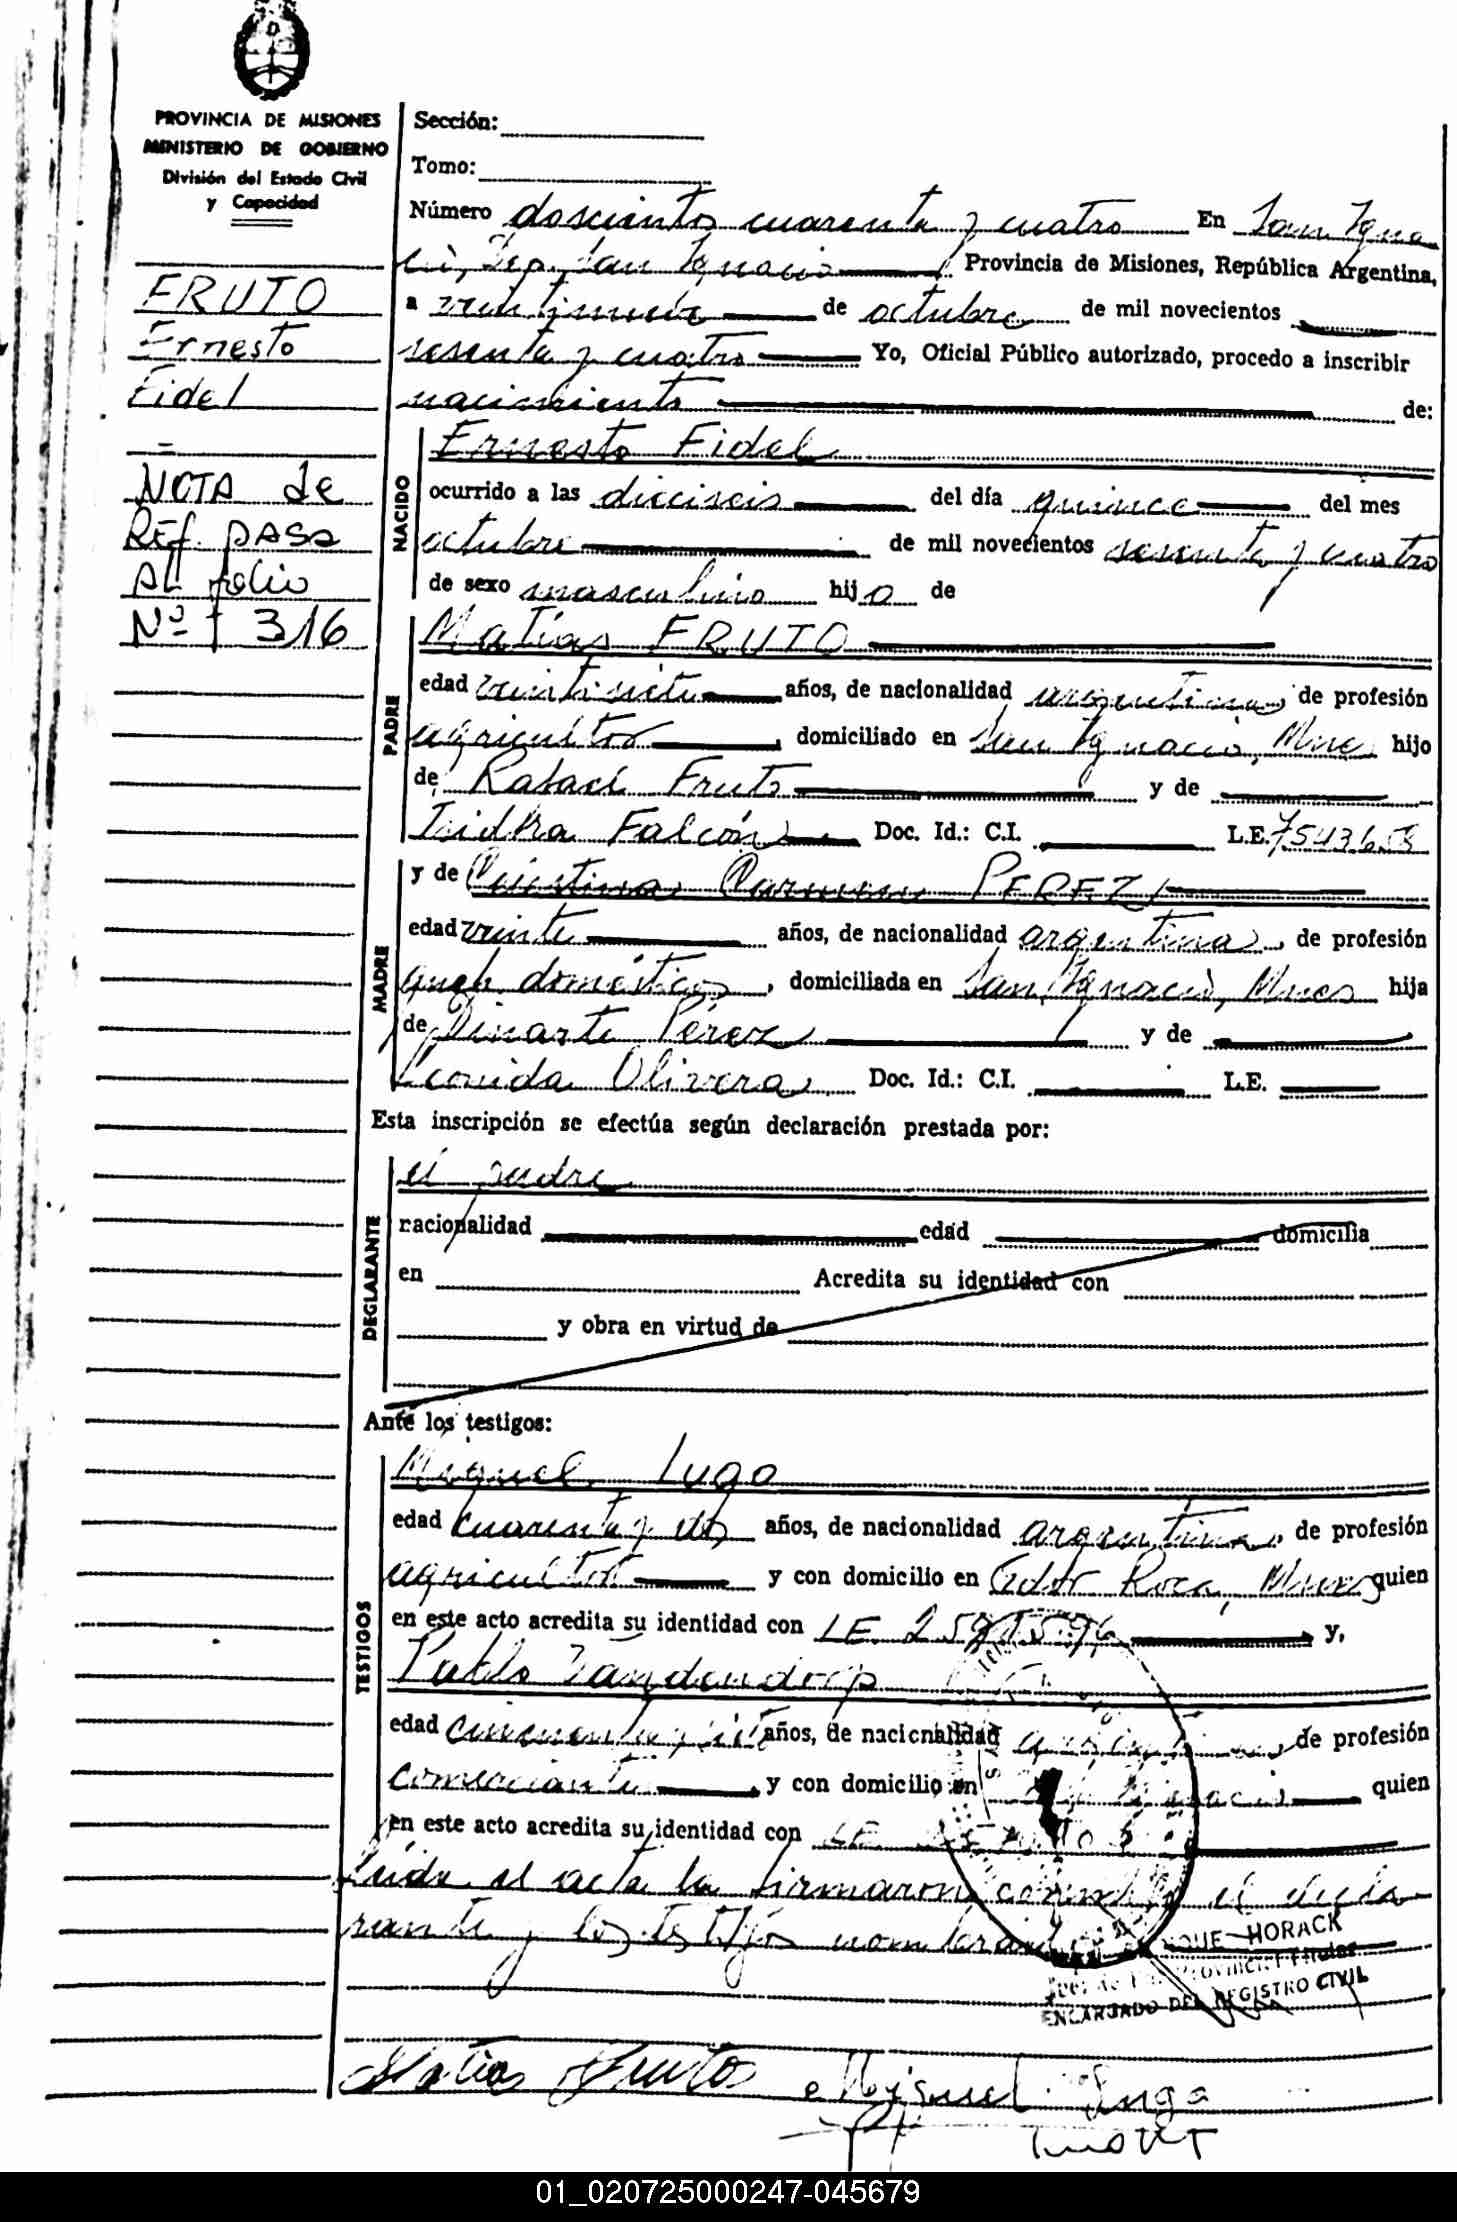 PROVINCIA DE MISIONES
MINISTERIO DE GOBIERNO
División del Estado Civil
y Capacidad
FRUTO
Ernesto
Fidel
=
NOTA de
REf. PASA
AL folio
Nº 316
Sección:
Tomo:
Número doscientos cuarenta y cuatro En San Igna
cio, Dep. San Ignacio Provincia de Misiones, República Argentina,
a veintinueve de octubre de mil novecientos
sesenta y cuatro Yo, Oficial Público autorizado, procedo a inscribir
nacimiento de:
NACIDO
Ernesto Fidel
ocurrido a las dieciseis del día quince del mes
octubre de mil novecientos sesenta y cuatro
de sexo masculino hijo de
PADRE
Matías FRUTO
edad veintisiete años, de nacionalidad argentina, de profesión
agricultor, domiciliado en San Ignacio, Mnes hijo
de Rafael Fruto y de
Isidra Falcón Doc. Id.: C.I. L.E. 7543608
MADRE
y de Cristina Carmen PEREZ
edad veinte años, de nacionalidad argentina, de profesión
queh. domésticos, domiciliada en San Ignacio, Mnes hija
de Dinarte Pérez y de
Leonida Olivera Doc. Id.: C.I. L.E.
Esta inscripción se efectúa según declaración prestada por:
DECLARANTE
el padre
nacionalidad edad domicilia
en Acredita su identidad con
y obra en virtud de
Ante los testigos:
TESTIGOS
Miguel Lugo
edad cuarenta y dos años, de nacionalidad argentina, de profesión
agricultor y con domicilio en Gdor Roca, Mnes quien
en este acto acredita su identidad con LE y,
Pablo Vandendorp
edad cincuenta y años, de nacionalidad argentina, de profesión
comerciante y con domicilio en quien
en este acto acredita su identidad con LE
Leída el acta la firmaron conmigo el decla
rante y los testigos nombrados
HORACK
ENCARGADO DEL REGISTRO CIVIL
Matias Fruto Miguel Luga
01_020725000247-045679